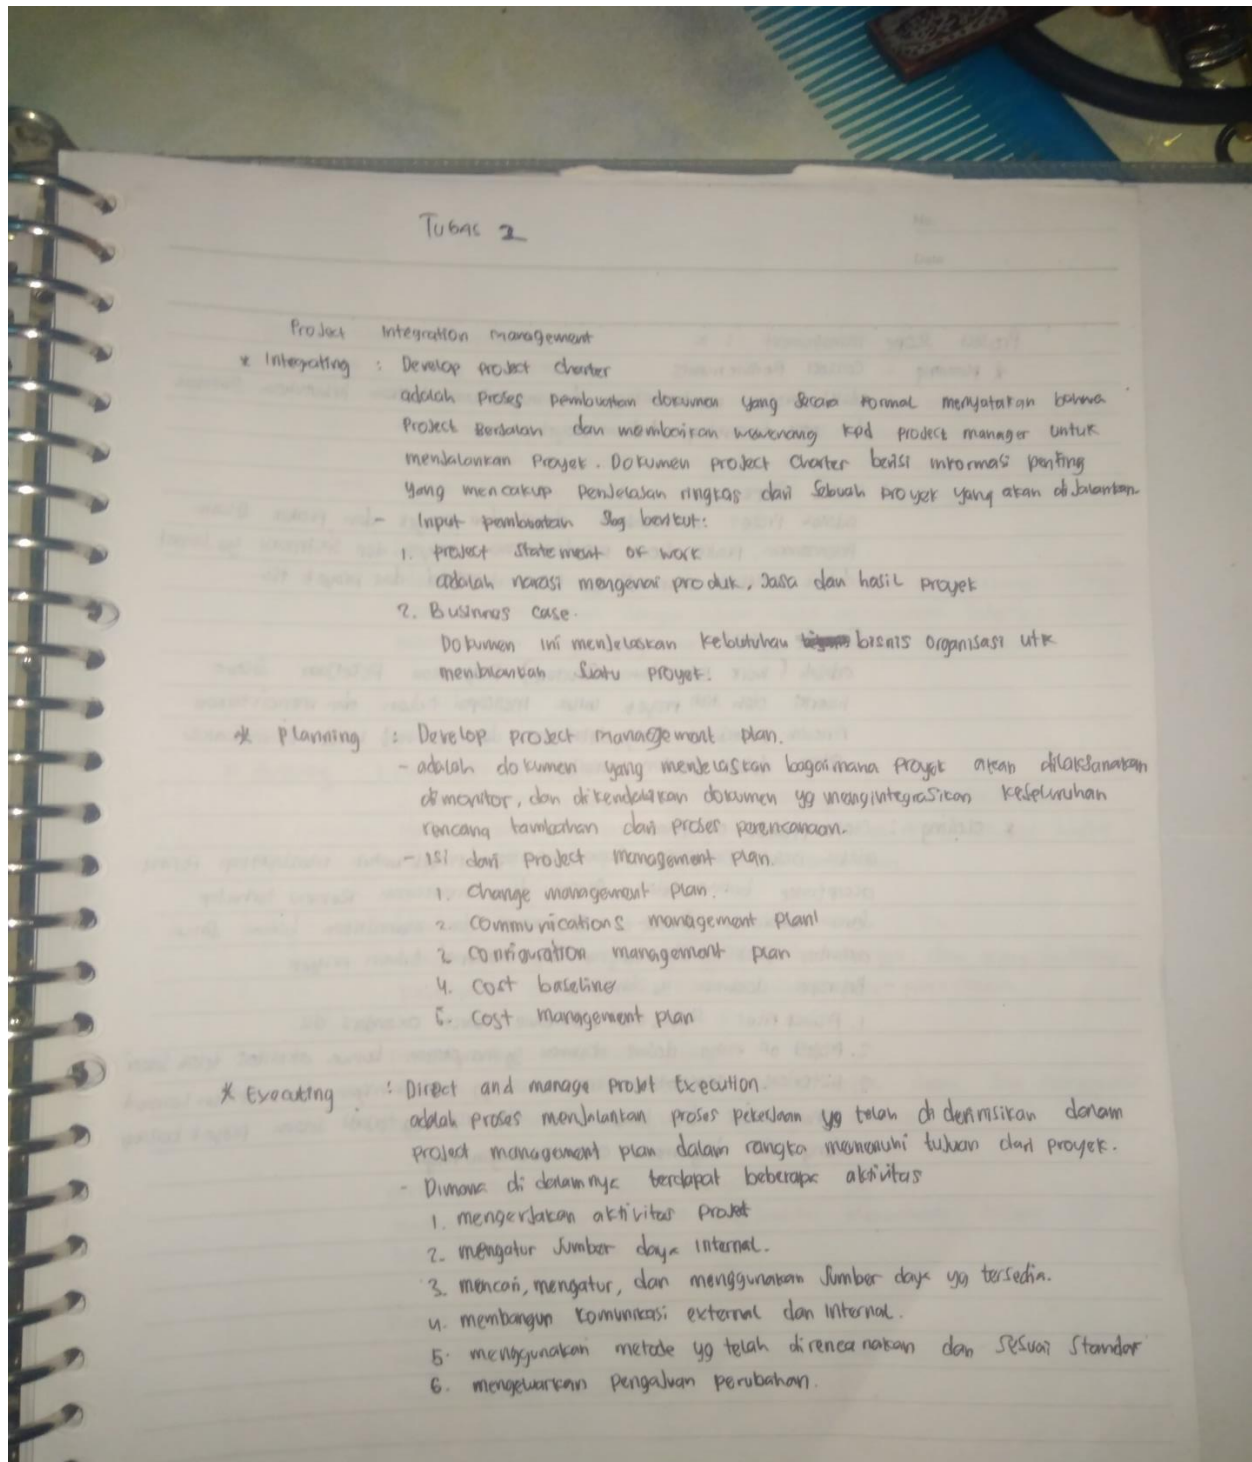 TUGAS 2
Project Integration management
* Integrating : Develop project charter
adalah proses pembuatan dokumen yang secara formal menyatakan bahwa
Project Berjalan dan memberikan wewenang kpd project manager untuk
menjalankan Proyek. Dokumen project Charter berisi informasi penting
yang mencakup Penjelasan ringkas dari sebuah proyek yang akan di jalankan
- Input pembuatan sbg berikut:
1. project statement of work
adalah narasi mengenai produk, Jasa dan hasil proyek
2. Businnes case.
Dokumen ini menjelaskan kebutuhan bisnis organisasi utk
menjalankan suatu proyek.
* Planning : Develop project management plan.
- adalah dokumen yang menjelaskan bagaimana proyek akan dilaksanakan
di monitor, dan dikendalikan dokumen yg mengintegrasikan keseluruhan
rencang tambahan dari proses perencanaan.
- isi dari project management plan.
1. Change management plan.
2. communications management plan
3. configuration management plan
4. cost baseline
5. cost management plan
* Executing : Direct and manage projet Execution.
adalah proses menjalankan proses pekerjaan yg telah di definisikan dalam
project management plan dalam rangka memenuhi tujuan dari proyek.
- Dimana di dalamnya terdapat beberapa aktivitas
1. mengerjakan aktivitas projet
2. mengatur sumber daya internal.
3. mencari, mengatur, dan menggunakan sumber daya yg tersedia.
4. membangun komunikasi external dan internal.
5. menggunakan metode yg telah direncanakan dan sesuai standar
6. mengeluarkan pengajuan perubahan.